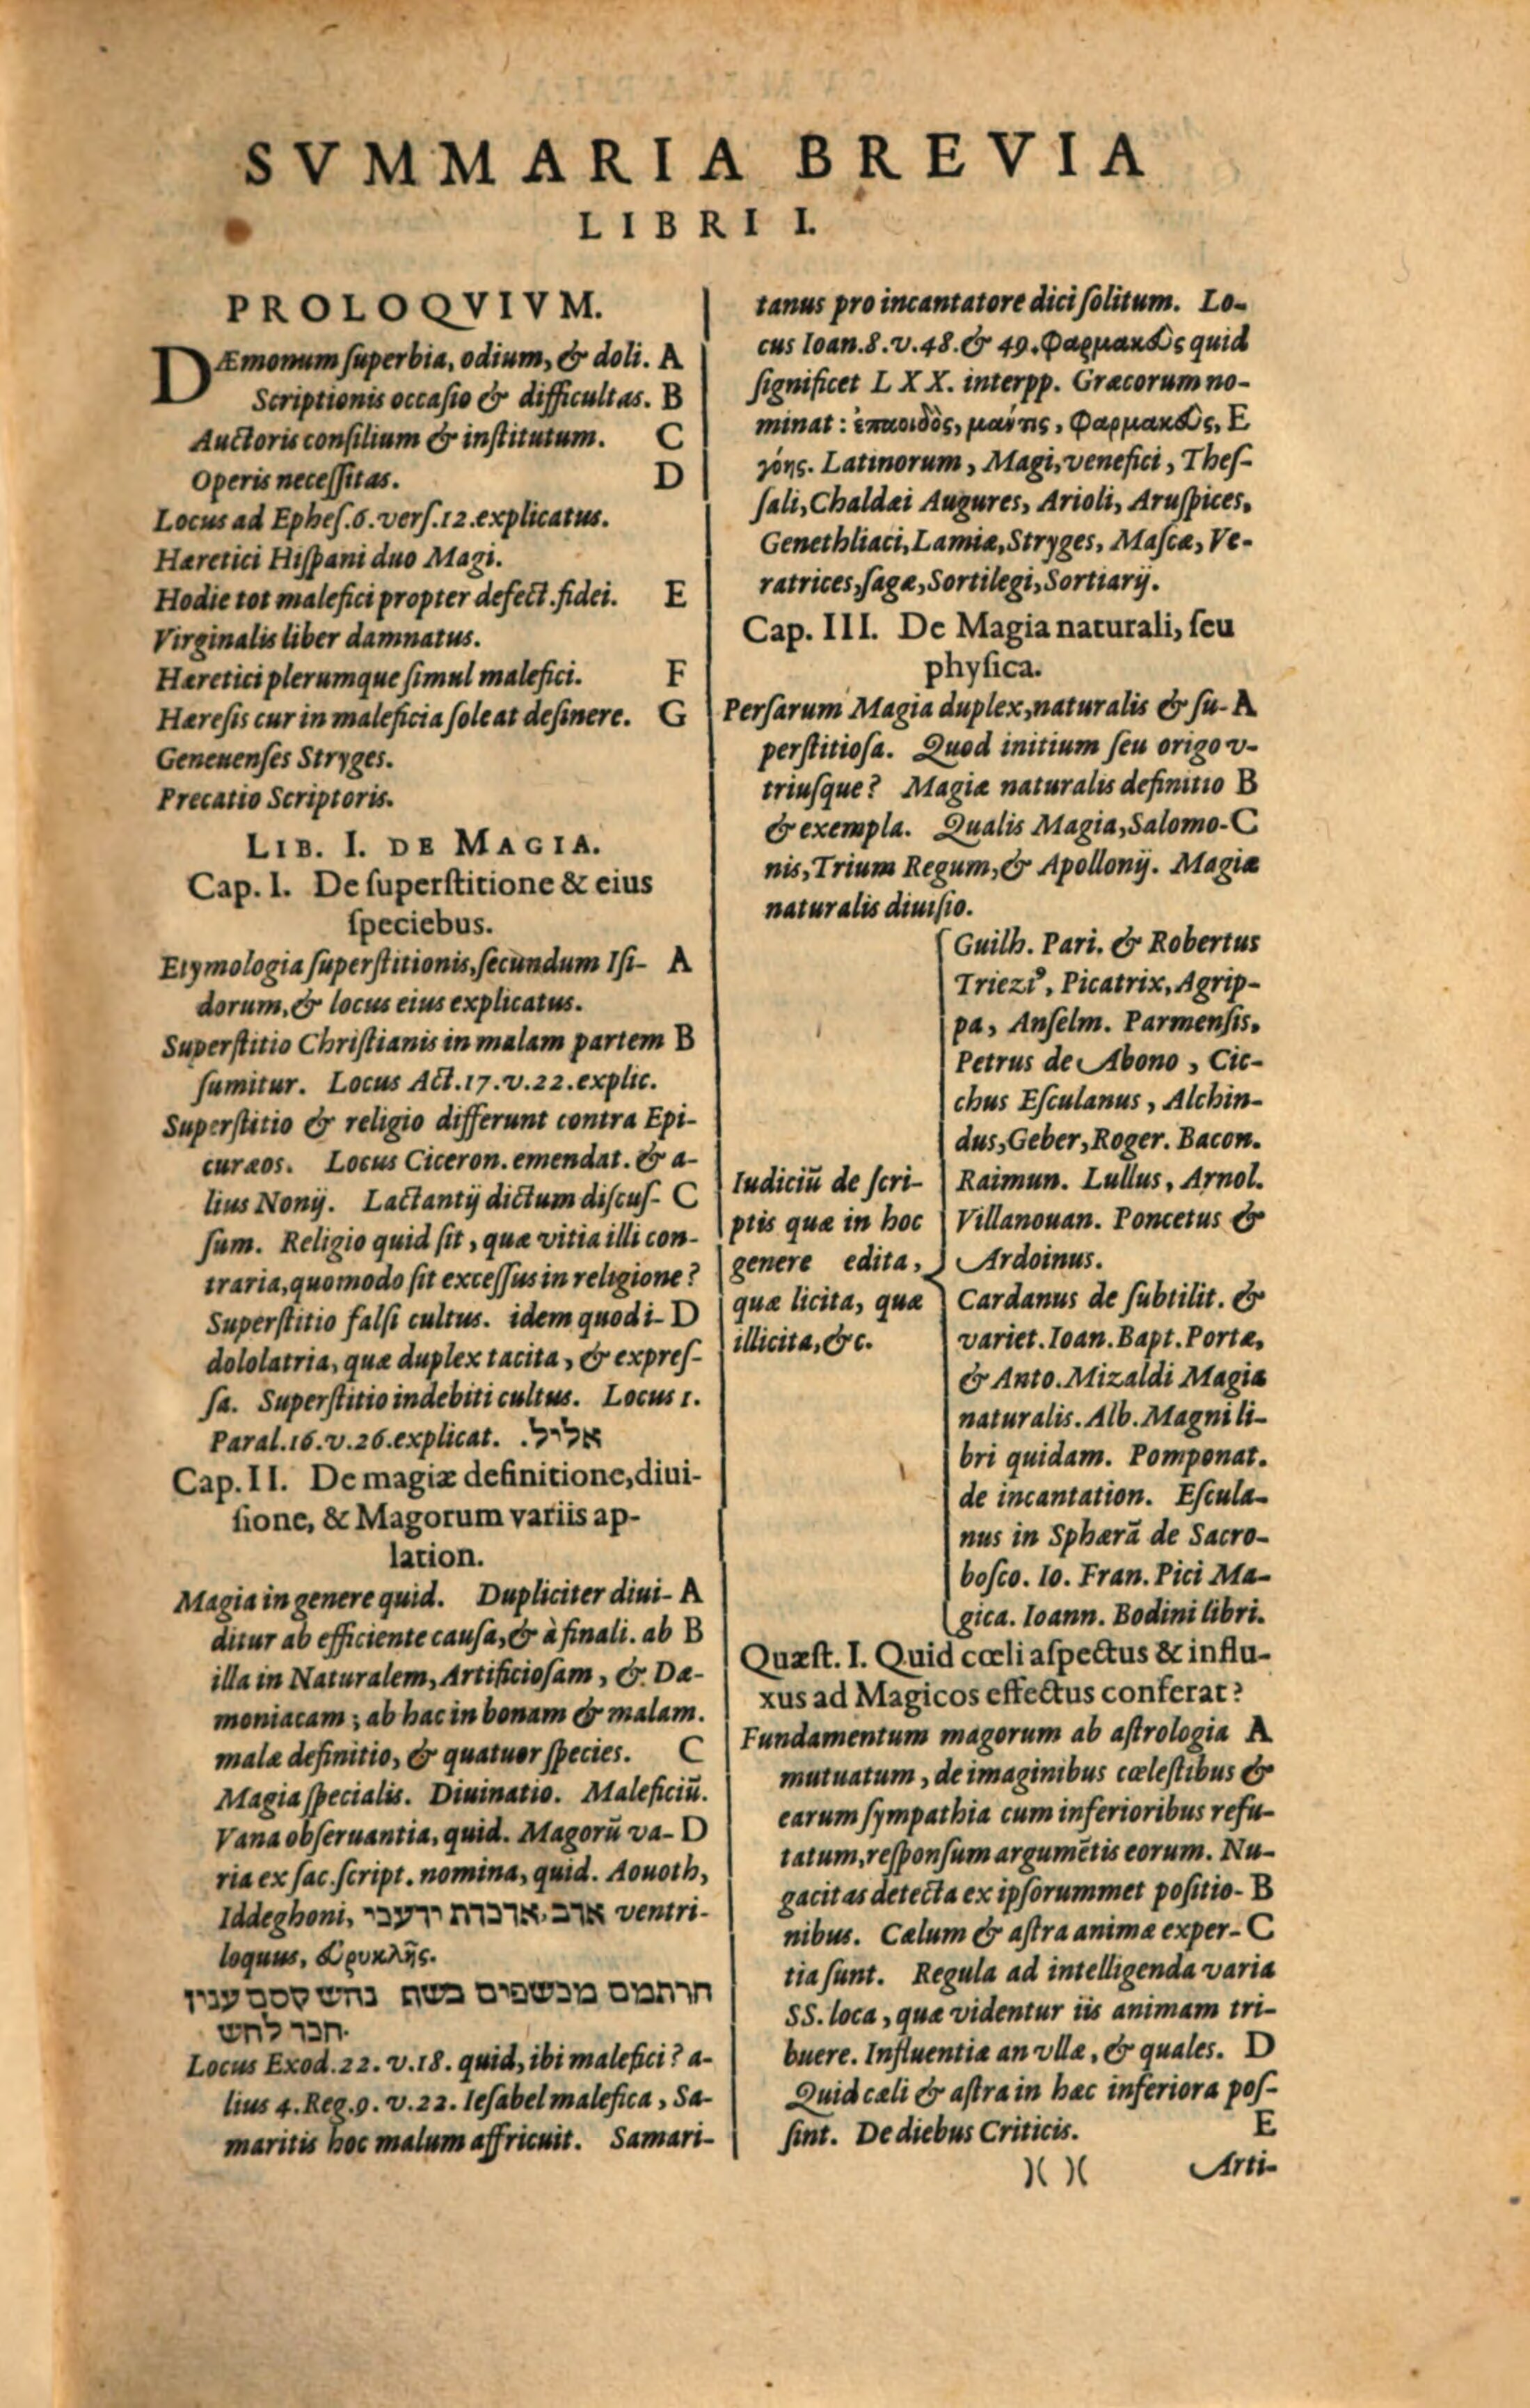 SVMMARIA BREVIA
LIBRI I.
PROLOQVIVM.
DÆmonum ſuperbia, odium, & doli. A
Scriptionis occaſio & difficultas. B
Auctoris conſilium & inſtitutum. C
Operis neceſſitas. D
Locus ad Epheſ.6.verſ.12.explicatus.
Hæretici Hiſpani duo Magi.
Hodie tot malefici propter defect.fidei. E
Virginalis liber damnatus.
Hæretici plerumque ſimul malefici. F
Hæreſis cur in maleficia ſoleat deſinere. G
Geneuenſes Stryges.
Precatio Scriptoris.
LIB. I. DE MAGIA.
Cap. I. De ſuperſtitione & eius
ſpeciebus.
Etymologia ſuperſtitionis,ſecundum Iſi- A
dorum,& locus eius explicatus.
Superſtitio Chriſtianis in malam partem B
ſumitur. Locus Act.17.v.22.explic.
Superſtitio & religio differunt contra Epi-
curæos. Locus Ciceron.emendat.& a-
lius Nonij. Lactantij dictum diſcuſ- C
ſum. Religio quid ſit, quæ vitia illi con-
traria,quomodo ſit exceſſus in religione?
Superſtitio falſi cultus. idem quod i- D
dololatria, quæ duplex tacita, & expreſ-
ſa. Superſtitio indebiti cultus. Locus 1.
Paral.16.v.26.explicat. אליל.
Cap. II. De magiæ definitione,diui-
ſione, & Magorum variis ap-
lation.
Magia in genere quid. Dupliciter diui- A
ditur ab efficiente cauſa,& à finali. ab B
illa in Naturalem, Artificioſam, & Dæ-
moniacam; ab hac in bonam & malam.
malæ definitio, & quatuor ſpecies. C
Magia ſpecialis. Diuinatio. Maleficiũ.
Vana obſeruantia, quid. Magorũ va- D
ria ex ſac.ſcript. nomina, quid. Aouoth,
Iddeghoni, ventri-
loquus,
חרתמים מכשפים כשף נחש קסם ענין
חבר לחש.
Locus Exod.22. v.18. quid, ibi malefici? a-
lius 4.Reg.9. v.22. Ieſabel malefica, Sa-
maritis hoc malum affricuit. Samari-
tanus pro incantatore dici ſolitum. Lo-
cus Ioan.8.v.48.& 49.Φαρμακὸς quid
ſignificet LXX. interpp. Græcorum no-
minat: ἐπαοιδὸς, μάντις, Φαρμακὸς, E
γόης. Latinorum, Magi,venefici, Theſ-
ſali,Chaldæi Augures, Arioli, Aruſpices,
Genethliaci,Lamiæ,Stryges, Maſcæ, Ve-
ratrices,ſagæ,Sortilegi,Sortiarij.
Cap. III. De Magia naturali, ſeu
phyſica.
Perſarum Magia duplex,naturalis & ſu- A
perſtitioſa. Quod initium ſeu origo v-
triuſque? Magiæ naturalis definitio B
& exempla. Qualis Magia,Salomo- C
nis,Trium Regum,& Apollonij. Magiæ
naturalis diuiſio.
Iudiciũ de ſcri-
ptis quæ in hoc
genere edita,
quæ licita, quæ
illicita,&c.
Guilh. Pari. & Robertus
Triezꝰ, Picatrix, Agrip-
pa, Anſelm. Parmenſis,
Petrus de Abono, Cic-
chus Eſculanus, Alchin-
dus,Geber,Roger. Bacon.
Raimun. Lullus, Arnol.
Villanouan. Poncetus &
Ardoinus.
Cardanus de ſubtilit. &
variet.Ioan.Bapt.Portæ,
& Anto.Mizaldi Magia
naturalis. Alb. Magni li-
bri quidam. Pomponat.
de incantation. Eſcula-
nus in Sphærã de Sacro-
boſco. Io. Fran. Pici Ma-
gica. Ioann. Bodini libri.
Quæſt. I. Quid cœli aſpectus & influ-
xus ad Magicos effectus conferat?
Fundamentum magorum ab aſtrologia A
mutuatum, de imaginibus cæleſtibus &
earum ſympathia cum inferioribus refu-
tatum,reſponſum argumẽtis eorum. Nu-
gacitas detecta ex ipſorummet poſitio- B
nibus. Cælum & aſtra animæ exper- C
tia ſunt. Regula ad intelligenda varia
SS. loca, quæ videntur iis animam tri-
buere. Influentiæ an vllæ, & quales. D
Quid cæli & aſtra in hæc inferiora poſ-
ſint. De diebus Criticis. E
)( )( Arti-